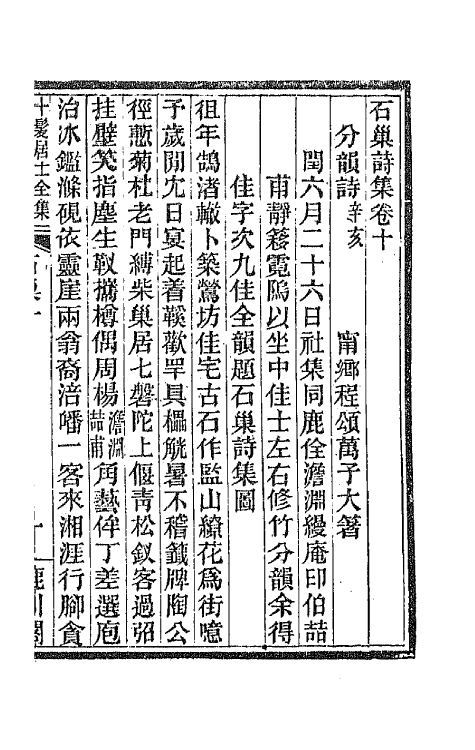 石巢詩集卷十
分韻詩辛亥
甯鄉程頌萬子大著
閏六月二十六日社集同鹿佺澹淵緩庵印伯喆
甫靜簃霓隖以坐中佳士左右修竹分韻余得
佳字次九佳全韻題石巢詩集圖
徂年鵠渚轍卜築鶯坊佳宅古石作監山繚花爲街噫
予歲閒尢日宴起着鞵歡罕具櫑觥暑不稽籤牌陶公
徑慙菊杜老門縛柴巢居七磐陀上偃靑松釵客過弨
挂壁笑指塵生靫攜樽偶周楊澹淵喆甫角藝侔丁差選庖
治冰鑑滌硯依靈崖兩翁裔涪皤一客來湘涯行腳貪
十髮居士全集